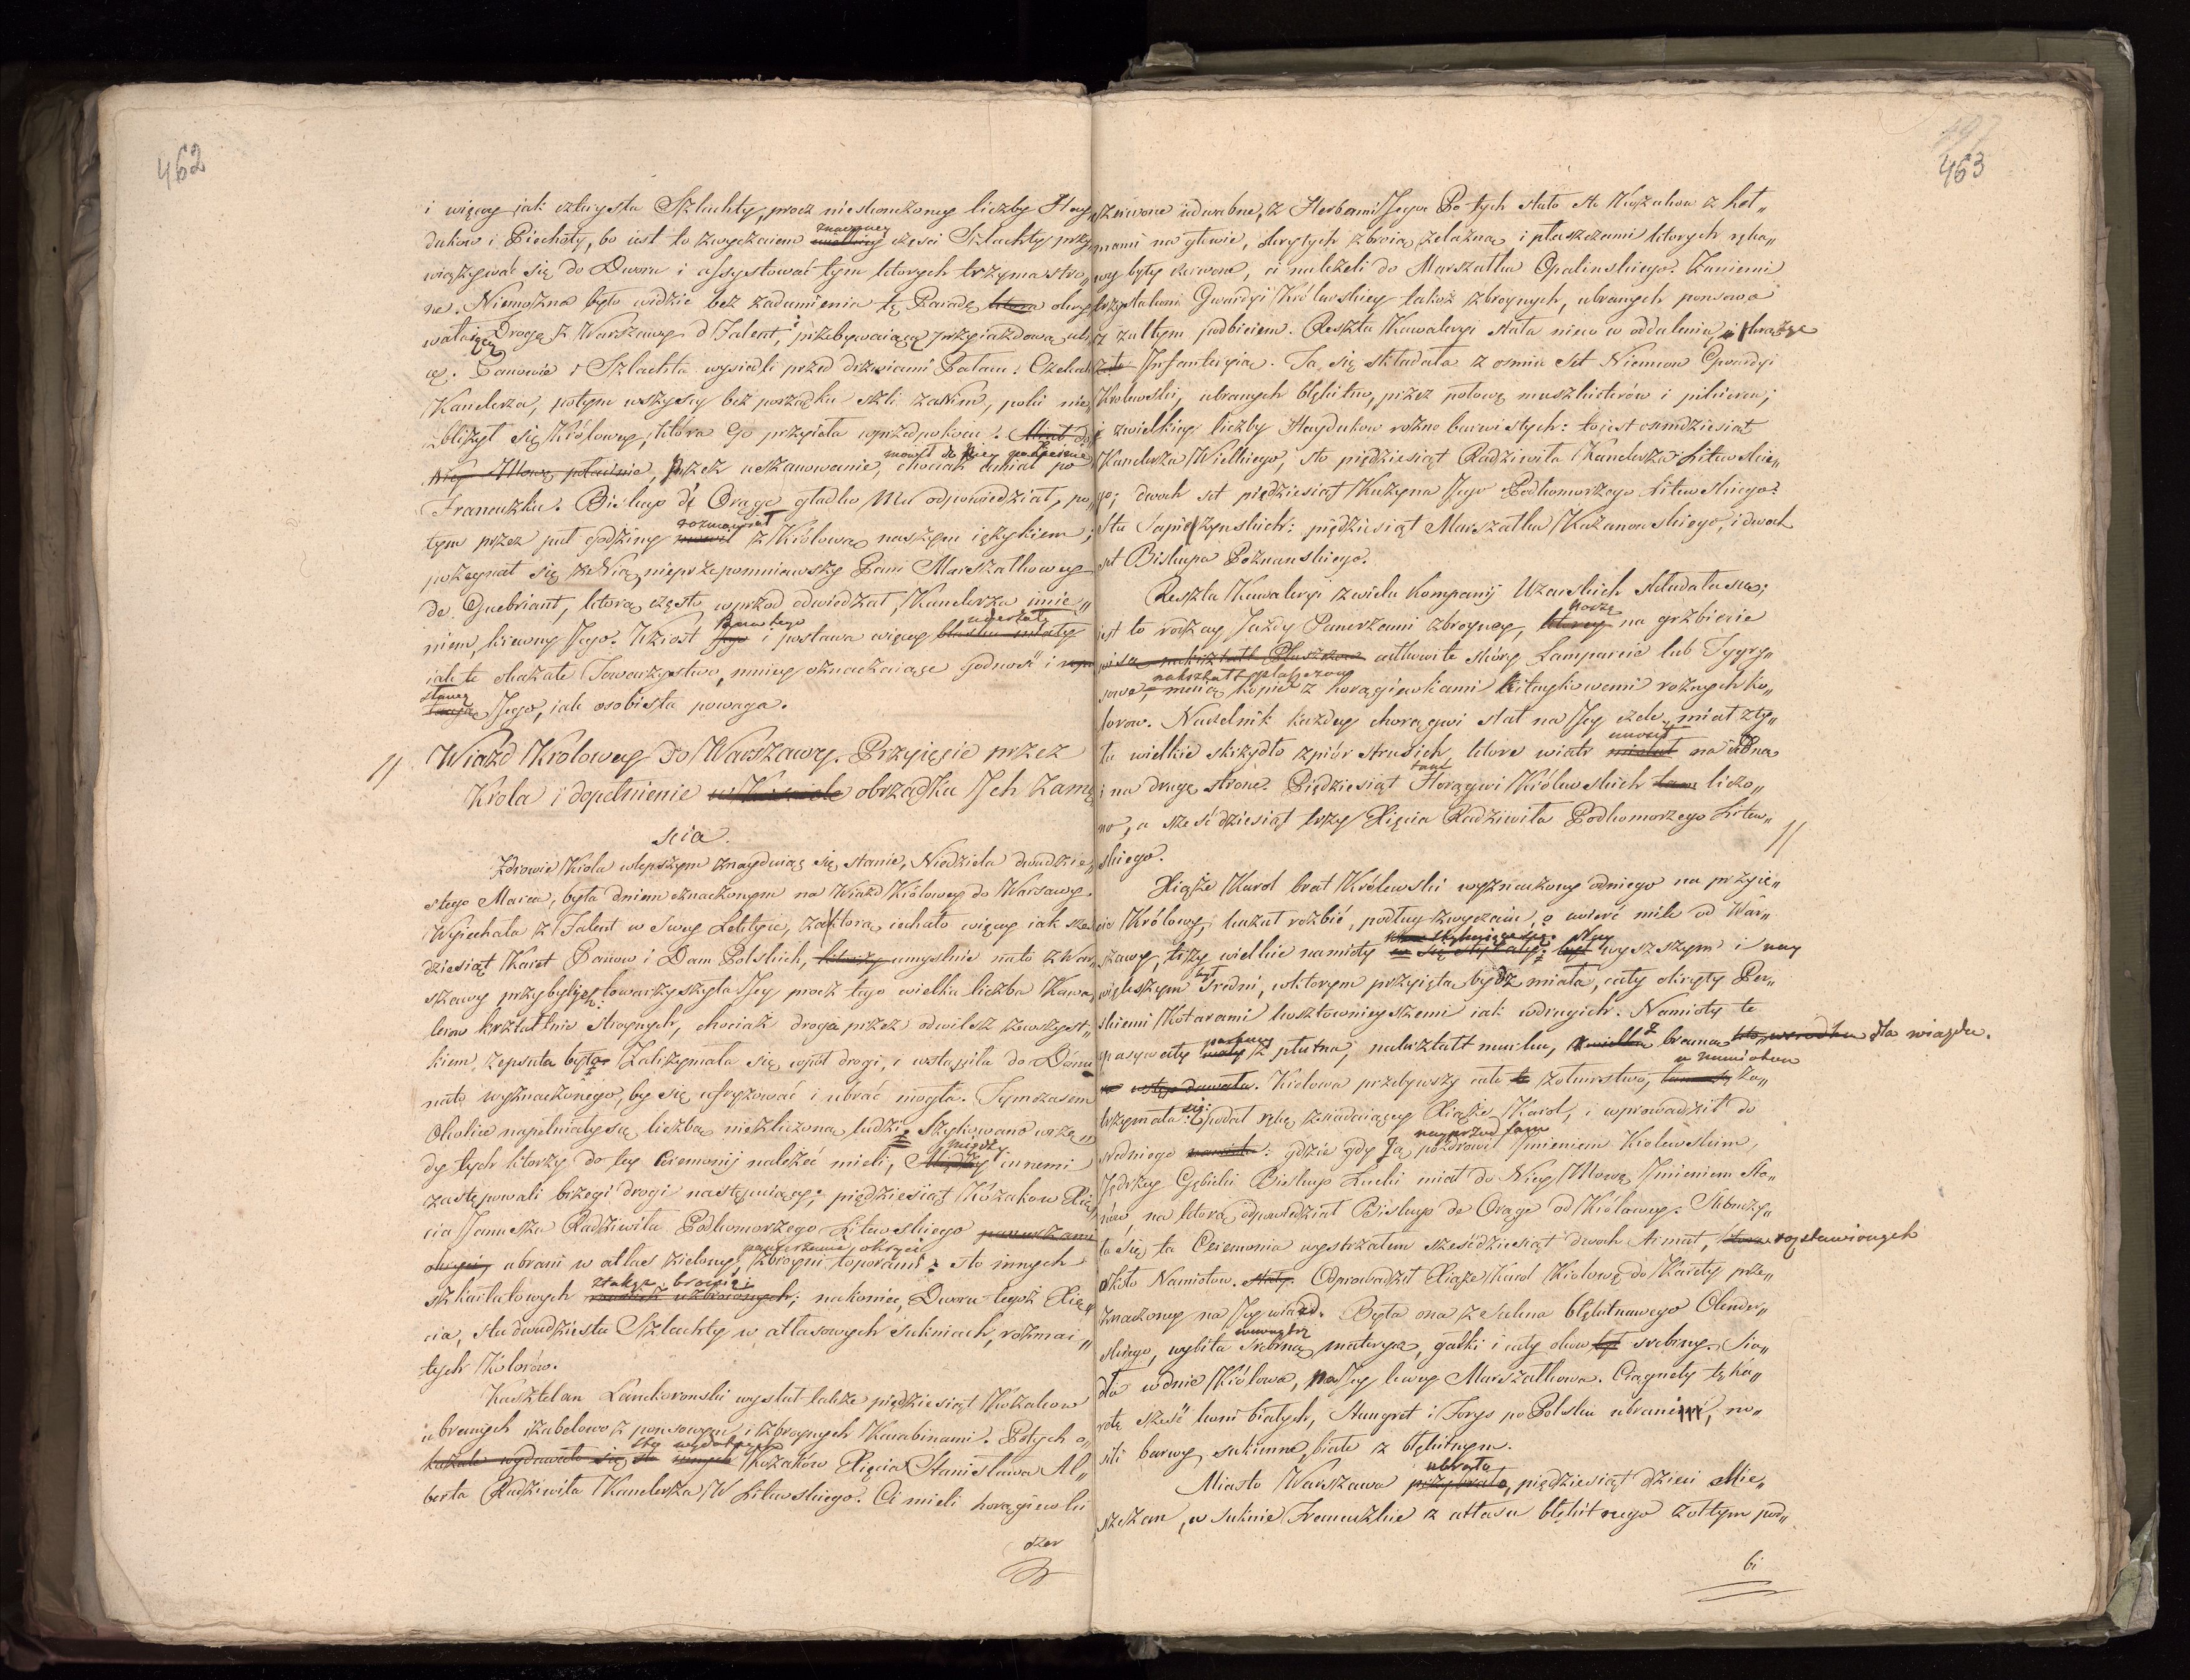 462
i więcey jak czterysta Szlachty, procz nieskonczoney liczby Hay„
dukow i Piechoty, bo iest to zwyczaiem znaczney części Szlachty przy„
wiązywać się do Dworu i assystować tym ktorych trzyma stro„
nę. Niemożna było widzieć bez zadumienia tę Paradę okry„
waiącą Drogę z Warszawy d Falent,
cą. Panowie i Szlachta wysiedli przed drzwiami Pałacu: Czekali
Kanclerza, potym wszyscy bez porządku szli zaNim, poki nie
zbliżył się Królowey, która Go przyięła wprzedpokoiu.
przez uszanowanie, mowił do Niey chociaż umiał po
Francuzku. Biskup dę Orąge gładko Mu odpowiedział, po„
tym przez puł godziny rozmawiał z Królową naszym ięzykiem;
pożegnał się zeNią, nieprzepomniawszy Pani Marszałkowey
de Guebriant, ktorą często wprzod odwiedzał, Kanclerza imie„
niem, krewny Jego. Wzrost znacznego i postawa więcey uderzały
iak te okazałe Towarzystwo, mniey oznaczaiące Godność i
sławę Jego, iak osobista powaga.
11 Wiazd Królowey do Warszawy. Przyięcie przez
Krola i dopełnienie obrządku Jch Zamę„
scia.
Zdrowie Krola wlepszym znayduiąc się stanie, Niedziela dwudzie„
stego Marca, była dniem oznaczonym na Wiazd Królowey do Warszawy.
Wyiechała z Falent w Swey Lektyce, zaktorą iechało więcey iak sze„
dziesiąt Karet Panow i Dam Polskich, umyslnie nato z War„
szawy przybyłych: towarzyszyła Jey procz tego wielka liczba Kawa„
lerow kształtnie stroynych, chociaż droga przez odwilsz zewszyst„
kiem zepsuta była. Zatrzymała się wpół drogi, i wstąpiła do Domu
nato wyznaczonego, by się ufryzować i ubrać mogła. Tymczasem
Okolice napełniały się liczbą niezliczoną ludzi. Szykowano wrzę„
dy tych ktorzy do tey Ceremonij należeć mieli, między innemi
zastępowali brzegi drogi następuiący: piędziesiąt Kozakow Xię„
cia Janusza Radziwiła Podkomorzego Litewskiego
ubrani w atlas zielony, pancerzami okryci zbroyni toporami: sto innych
szkarłatowych także bronią; nakoniec, Dworu tegoż Xię„
cia, stu dwudziestu Szlachty w atlasowych Sukniach, rozmai„
tych Kolorów.
Kasztelan Lanckoronski wysłał także piędziesiąt Kozakow
ubranych izabelowo z ponsowym, i zbroynych Karabinami. Potych o„
Kozaków Xięcia Stanisława Al„
berta Radziwiła Kanclerza W Litewskiego. Ci mieli horągiewki
czer
463
czerwone iedwabne, z Herbami Jego. Po tych stało sto Kozakow z heł„
mami na głowie, okrytych zbroią żelazną i płaszczami ktorych ręka„
wy były czerwone, ci należeli do Marszałka Opalinskiego. Zaniemi
trzysta koni Gwardyi Królewskiey takoż zbroynych, ubranych ponsowo
z zułtym podbiciem. Reszta Kawaleryi stała nieco w oddaleniu,
Infanteryia. Ta się składała z osmiu set Niemcow Gwardyi
Krolewskii, ubranych błękitno, przez połowę muszkieterów i pikierow;
i zwielkiey liczby Haydukow rożno barwistych: to iest osmdziesiąt
Kanclerza Wielkiego, sto piędziesiąt Radziwiła Kanclerza Litewskie„
go; dwoch set piędziesiąt Kuzyna Jego Podkomorzego Litewskiego:
Stu Sapieżynskich: piędziesiąt Marszałka Kazanowskiego, i dwoch
set Biskupa Poznanskiego.
Reszta Kawaleryi zwielu Kompanij Uzarskich składała się;
iest to rodzay Jazdy Pancerzami zbroyney, noszą na grzbiecie
całkowite skóry Lamparcie lub Tygry„
sowe, nakształt płaszczow mieią kopie z horągiewkami kitaykowemi rożnych Ko„
lorow. Naczelnik każdey chorągwi stał na Jey czele, miał zty„
łu wielkie skrzydło zpiór strusich, ktore wiatr unosił na iedną
i na drugę stronę. Piędziesiąt Horągwi Królewskich tam liczo„
no, a sześćdziesiąt trzy Xięcia Radziwiła Podkomorzego Litew„
skiego. 11
Xiąże Karol brat Królewski wyznaczony odniego na przyię„
cie Królowey, kazał rozbić, podług zwyczaiu, o cwierć mile od War„
szawy, trzy wielkie namioty Nay wyszszym i nay
większym był Sredni, wktorym przyięta bydz miała, cały okryty Per„
skiemi Kotarami kosztownieyszemi iak wdrugich. Namioty te
z płutna, nakształt muru, z brama dla wiazdu.
Krolowa przebywszy całe żołnierstwo, u namiotow Za„
trzymała się: podał rękę zsiadaiącey Xiąże Karol, i wprowadził do
sredniego: gdzie gdy Ją nayprzod tam pozdrowił Jmieniem Krolewskim,
Jędrzey Gębicki Biskup Łucki miał do Niey Mowę Jmieniem Sta„
nów, na ktorą odpowiedział Biskup de Orąge od Królowey. Skonczy„
ła się ta Ceremonia wystrzałem sześćdziesiąt dwoch Armat, rozstawionych
około Namiotow. Odprowadził Xiąże Karol Krolowę do Karety prze„
znaczoney na Jey wiazd. Była ona z axamitu błękitnawego Olender„
skiego, wybita wewnątrz Srebrną materyą, gałki i cały okow srebrny. Sia„
dła wdnie Królowa, na Jey lewey Marszałkowa. Ciągneły tę Ka„
retę sześć koni białych, Stangret i Foryś po Polsku ubrani, no„
sili barwę sukienne, białe z błękitnym.
Miasto Warszawa ubrała, piędziesiąt dzieci Mie„
szczan, w suknie Francuzkie z atłasu błękitnego żołtym pod„
bi